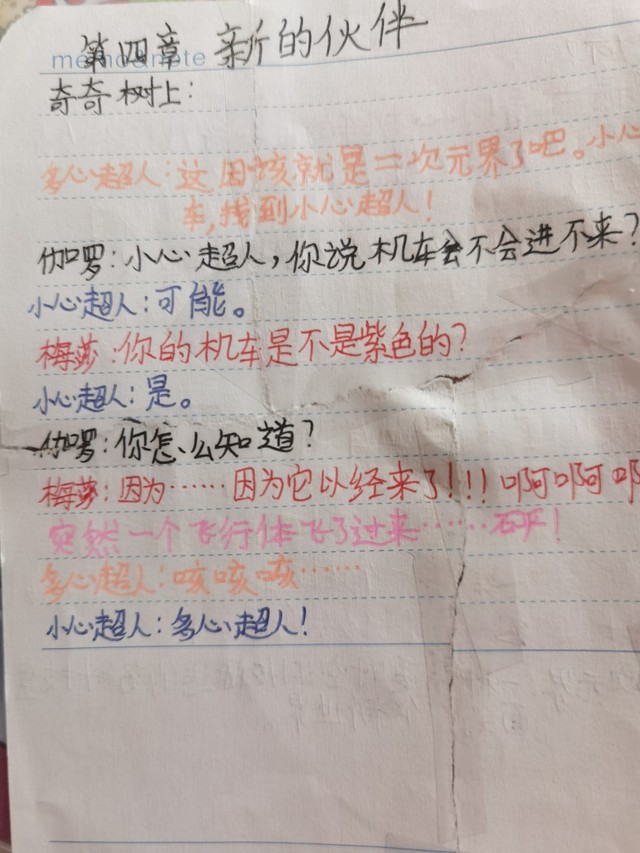 第四章 新的伙伴
奇奇树上：
多心超人：这因该就是二次元界了吧。小心
车，找到小心超人！
伽罗：小心超人，你说机车会不会进不来？
小心超人：可能。
梅莎：你的机车是不是紫色的？
小心超人：是。
伽罗：你怎么知道？
梅莎：因为……因为它以经来了！！！啊啊啊
突然一个飞行体飞了过来……砰！
多心超人：咳咳咳……
小心超人：多心超人！